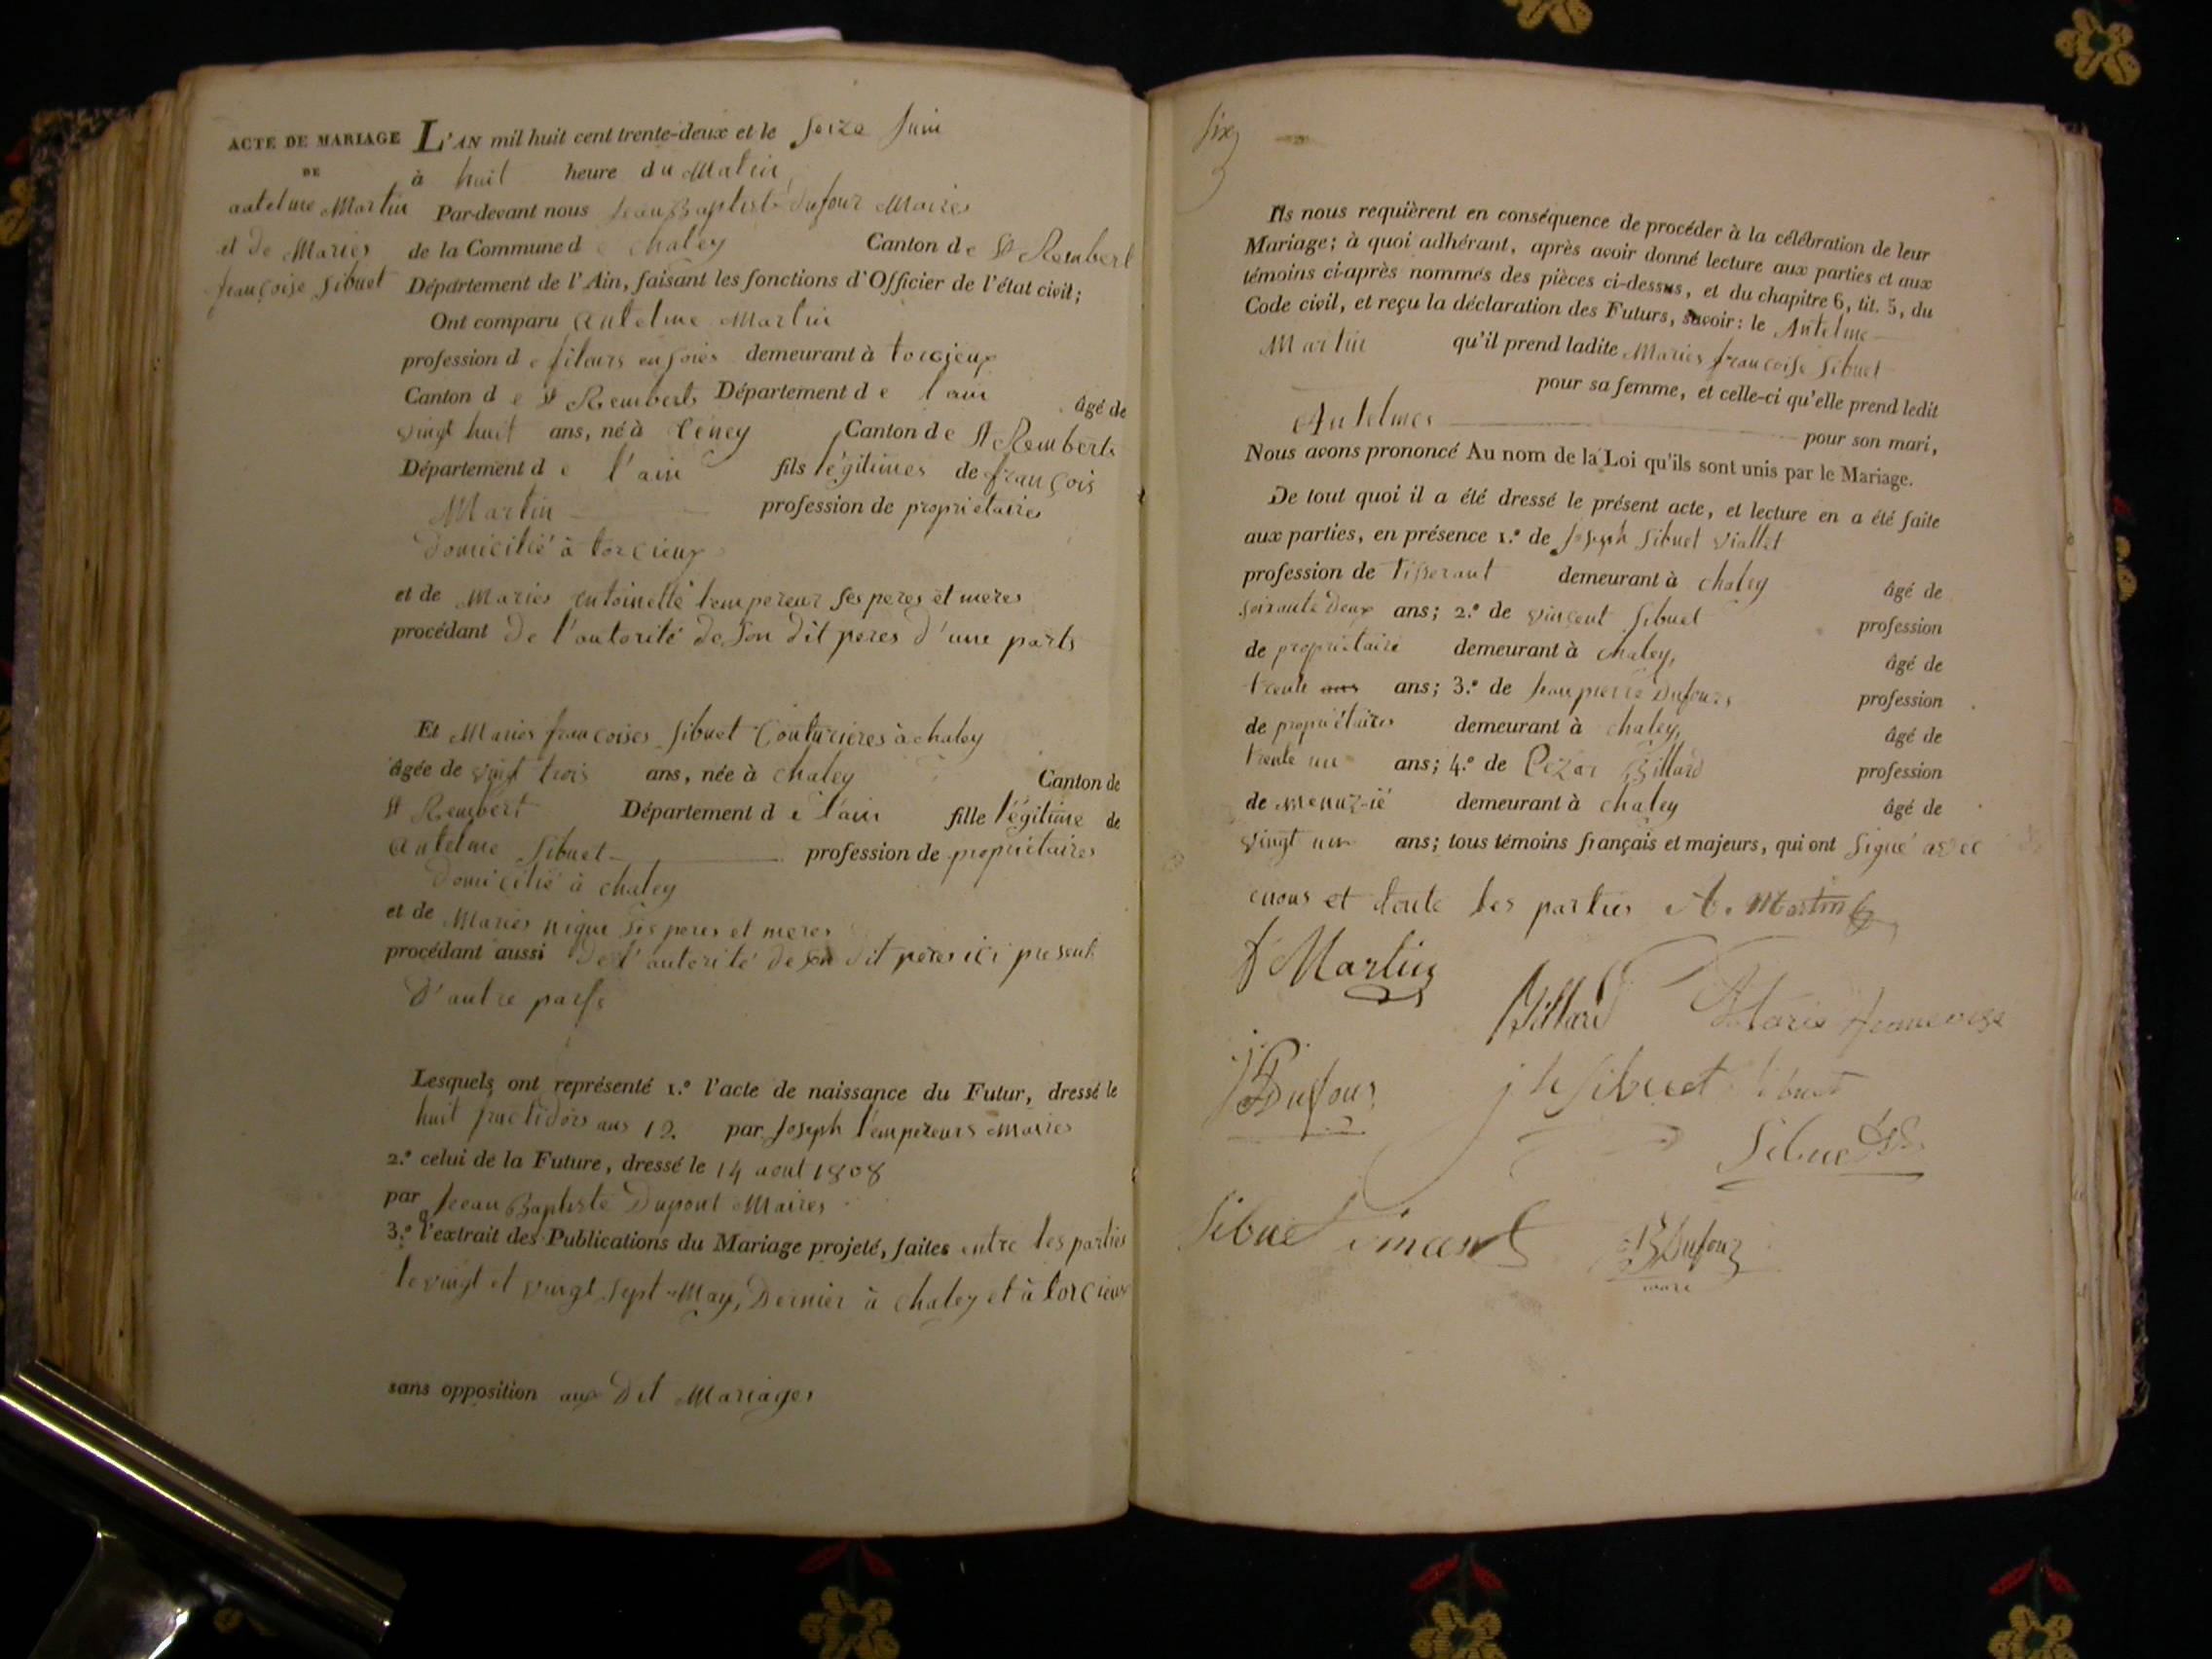 ACTE DE MARIAGE
DE
antelme Martin
et de Maries
françoise Sibuet
L'AN mil huit cent trente-deux et le Seize Juin
à huit heure du Matin,
Par-devant nous Jean Baptiste Dufour Maires
de la Commune de Chaley Canton de St Rembert
Département de l'Ain, faisant les fonctions d'Officier de l'état civil;
Ont comparu antelme Martin
profession de fileurs en soies demeurant à torcieux
Canton de St Remberts Département de l'ain âgé de
vingt huit ans, né à Ceney Canton de St Remberts
Département de l'ain fils légitimes de françois
Martin profession de propriétaires
Domicilié à torcieux
et de Maries entoinette lempereur ses peres et meres
procédant De l'autorité de Son dit peres d'une parts
Et Maries francoises Sibuet Couturieres à chaley
âgée de vingt trois ans, née à Chaley Canton de
St Rembert Département de l'ain fille légitime de
antelme Sibuet profession de propriétaires
Domicilié à chaley
et de Maries nigue Ses peres et meres
procédant aussi De l'autorité de son dit peres ici present
D'autre parts
Lesquels ont représenté 1.° l'acte de naissance du Futur, dressé le
huit fructidors ans 12. par Joseph lempereurs Maires
2.° celui de la Future, dressé le 14 aout 1808
par Jeean Baptiste Dupont Maires
3.° l'extrait des Publications du Mariage projeté, faites entre les parties
le vingt et vingt Sept May, Dernier à chaley et à torcieux
sans opposition aux Dit Mariages
Six
Ils nous requièrent en conséquence de procéder à la célébration de leur
Mariage; à quoi adhérant, après avoir donné lecture aux parties et aux
témoins ci-après nommés des pièces ci-dessus, et du chapitre 6, tit. 5, du
Code civil, et reçu la déclaration des Futurs, savoir: le Antelme
Martin qu'il prend ladite Maries françoise Sibuet
pour sa femme, et celle-ci qu'elle prend ledit
Antelmes pour son mari,
Nous avons prononcé Au nom de la Loi qu'ils sont unis par le Mariage.
De tout quoi il a été dressé le présent acte, et lecture en a été faite
aux parties, en présence 1.° de Joseph Sibuet Viallet
profession de Tisserant demeurant à chaley âgé de
soixante Deux ans; 2.° de Vincent Sibuet profession
de propriétaire demeurant à chaley, âgé de
trente ans ans; 3.° de Jean pierre Dufours profession
de propriétaires demeurant à chaley, âgé de
trente un ans; 4.° de Cezar Billard profession
de menuzié demeurant à chaley âgé de
Vingt un ans; tous témoins français et majeurs, qui ont Signé avec
enous et toute les parties A. Martin
f Martin
Billard Marie francoise
jP Dufour j h Sibuet Sibuet
Sibuet
Sibuet vincent JB Dufour
mare